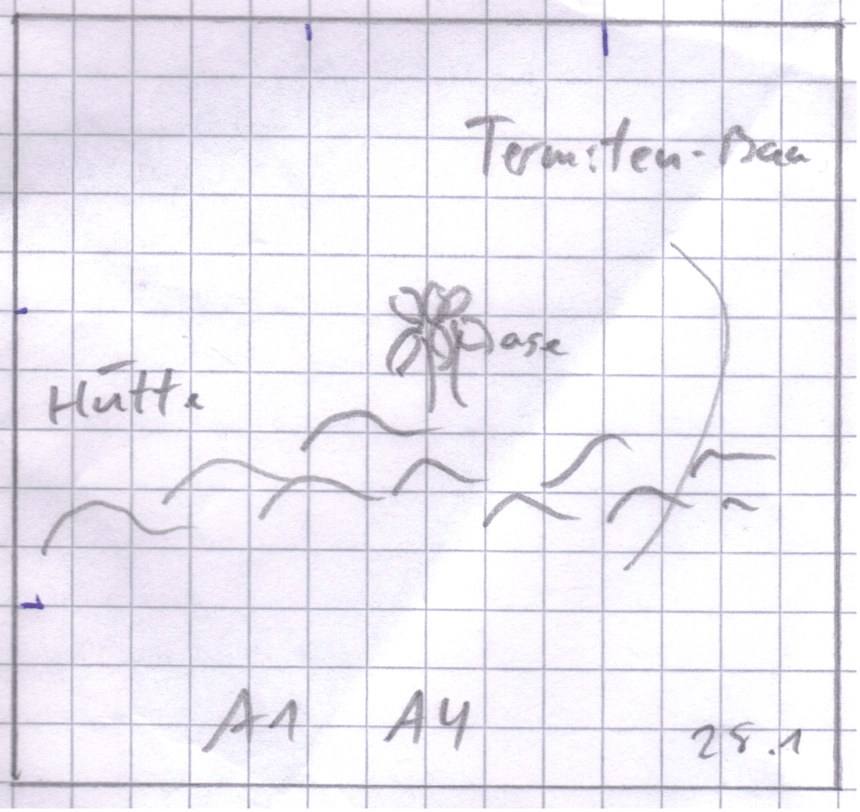 Termiten-Bau
Oase
Hütte
A1 A4
28.1